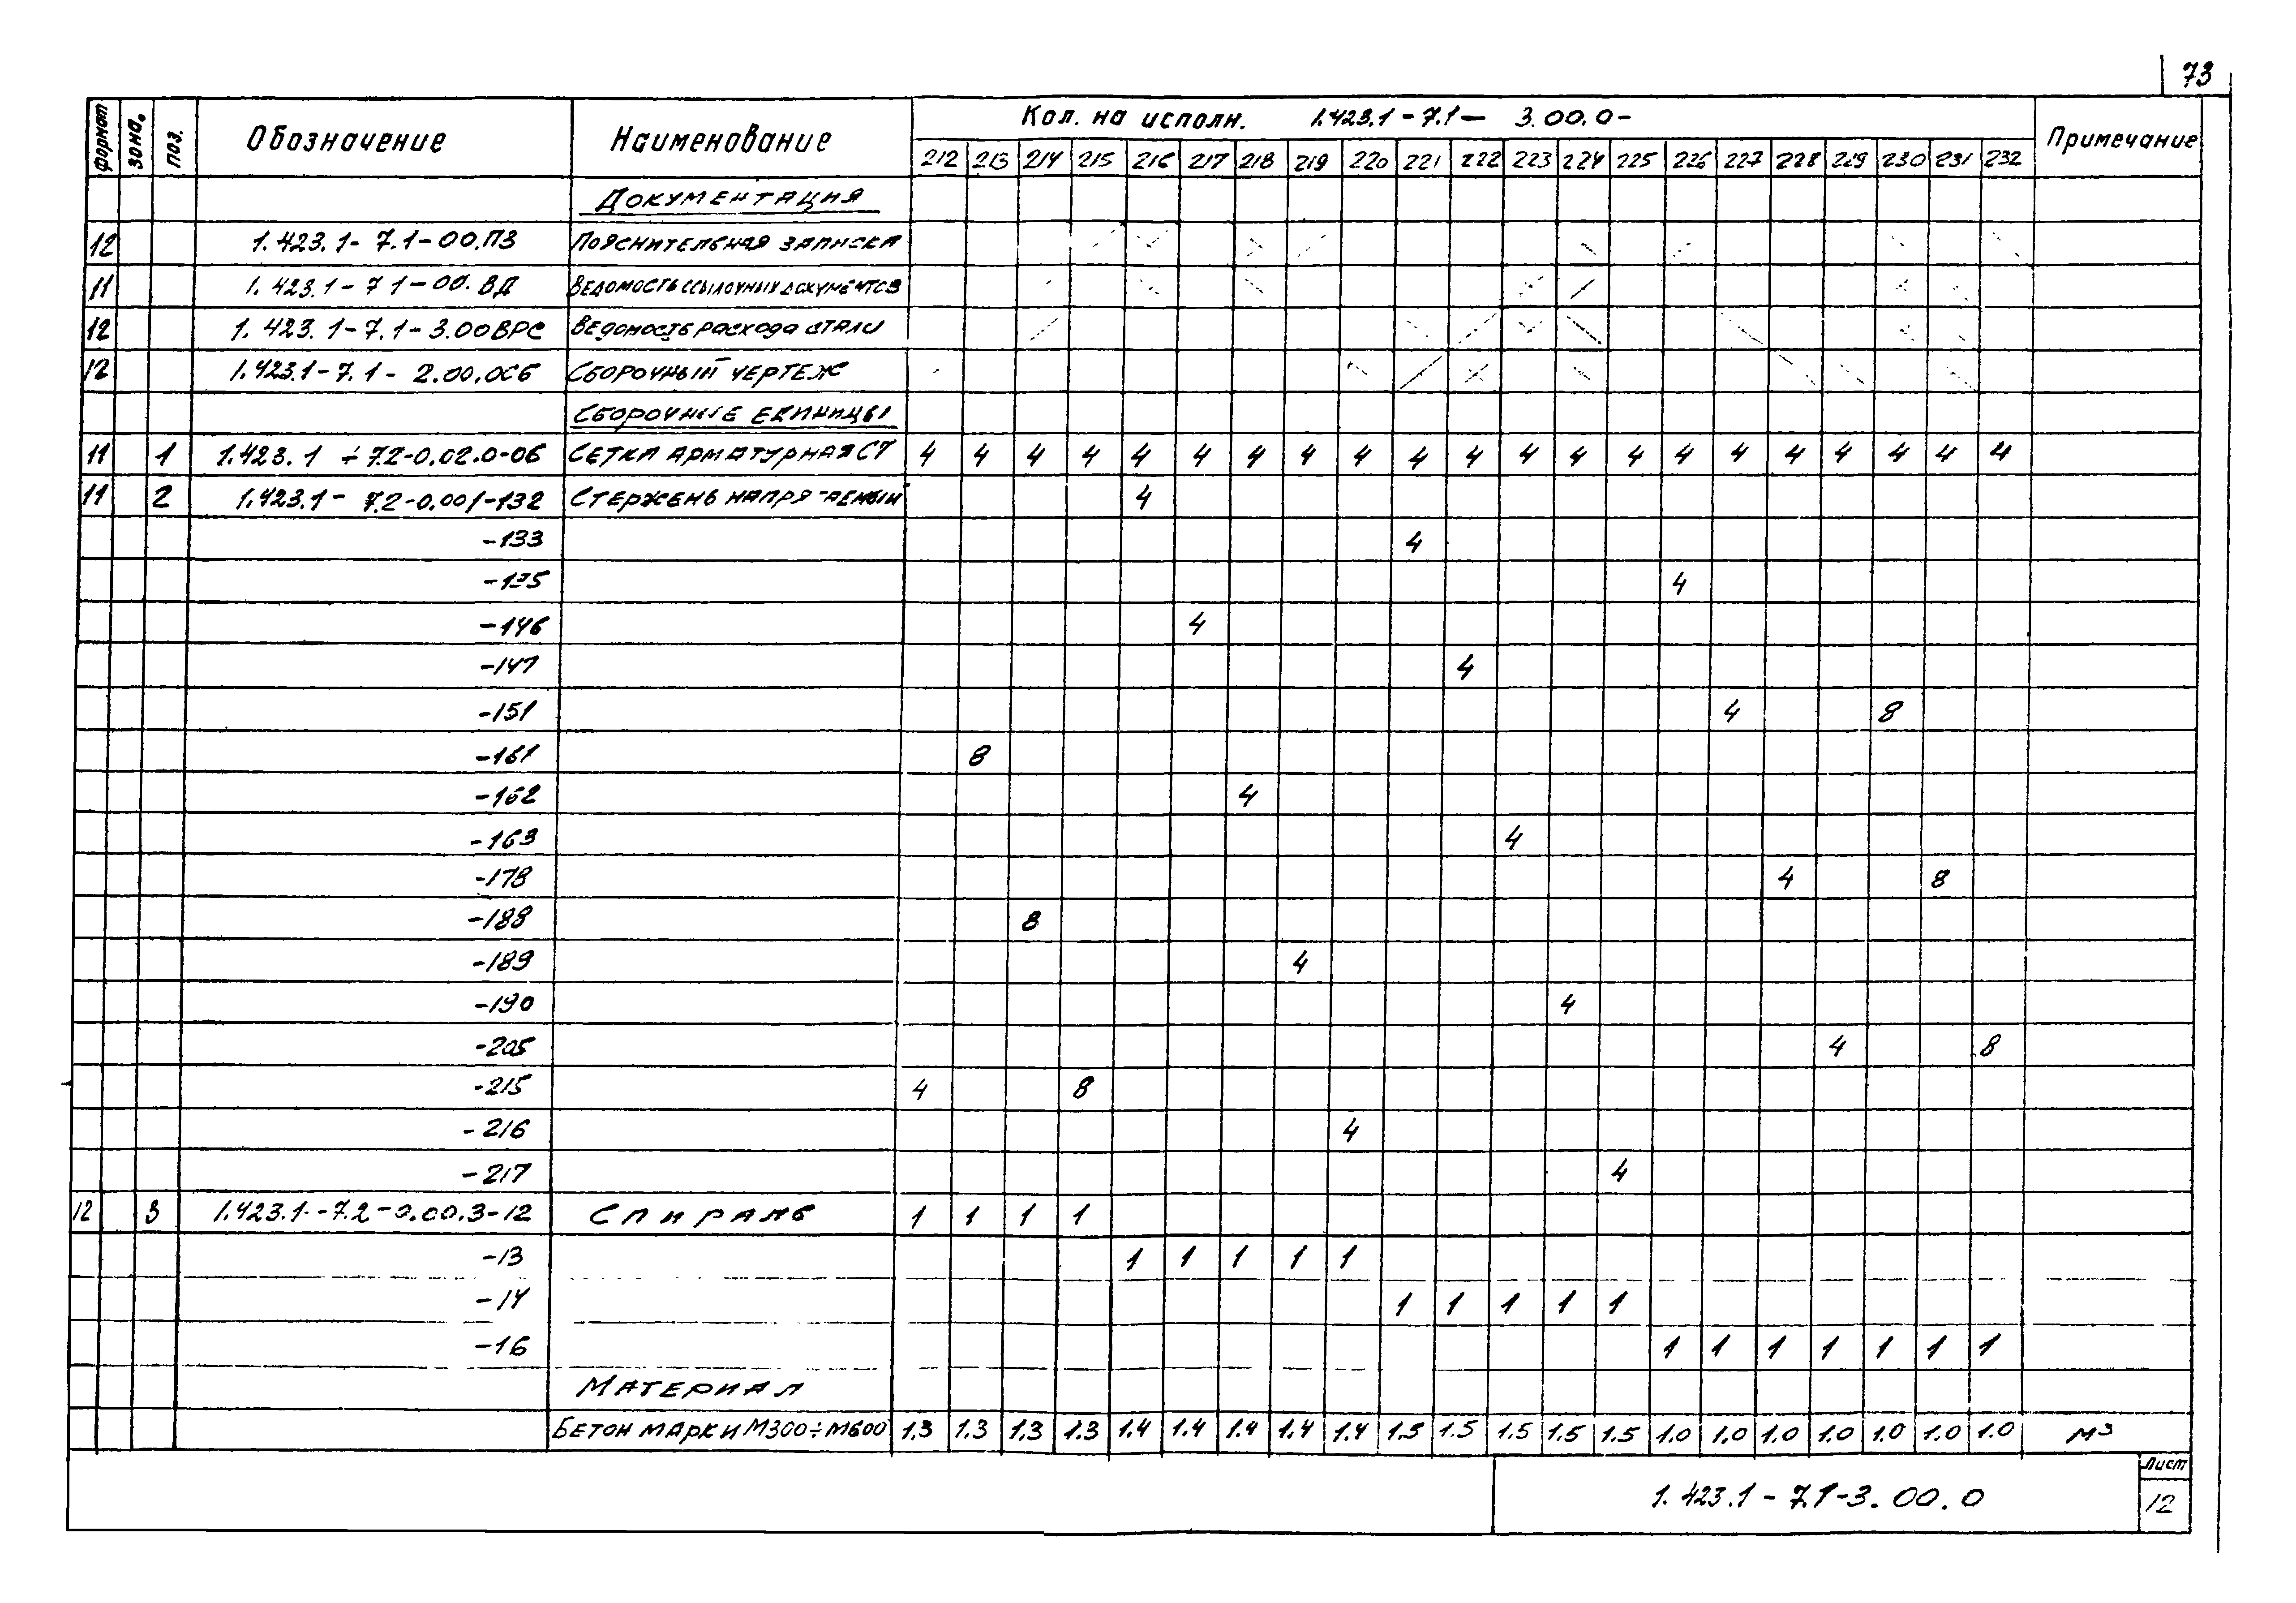 73
формат зона. поз. Обозначение Наименование Кол. на исполн. 1.423.1-7.1- 3.00.0- Примечание
212 213 214 215 216 217 218 219 220 221 222 223 224 225 226 227 228 229 230 231 232
Документация
12 1.423.1-7.1-00.ПЗ Пояснительная записка
11 1.423.1-7.1-00.ВД Ведомость ссылочных документов
12 1.423.1-7.1-3.00ВРС Ведомость расхода стали
12 1.423.1-7.1-2.00.0СБ Сборочный чертеж
Сборочные единицы
11 1 1.423.1-7.2-0.02.0-06 Сетка арматурная С7 4 4 4 4 4 4 4 4 4 4 4 4 4 4 4 4 4 4 4 4 4
11 2 1.423.1-7.2-0.001-132 Стержень 4
-133 4
-135 4
-146 4
-147 4
-151 4 8
-161 8
-162 4
-163 4
-178 4 8
-188 8
-189 4
-190 4
-205 4 8
-215 4 8
-216 4
-217 4
12 3 1.423.1-7.2-0.00.3-12 Спираль 1 1 1 1
-13 1 1 1 1 1
-14 1 1 1 1 1
-16 1 1 1 1 1 1 1
Материал
Бетон марки М300÷М600 1.3 1.3 1.3 1.3 1.4 1.4 1.4 1.4 1.4 1.5 1.5 1.5 1.5 1.5 1.0 1.0 1.0 1.0 1.0 1.0 1.0 м3
1.423.1-7.1-3.00.0
Лист
12